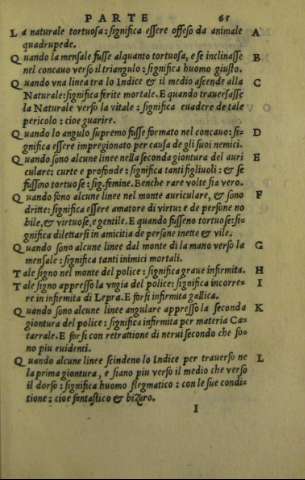 PARTE 65
La naturale tortuosa: significa essere offeso da animale A
quadrupede.
Quando la mensale fusse alquanto tortuosa, e se inclinasse B
nel concauo verso il triangolo: significa huomo giusto.
Quando vna linea tra lo Indice & il medio ascende alla C
Naturale: significa ferite mortale. E quando trauersasse
la Naturale verso la vitale: significa cuadere de tale
pericolo: cioe guarire.
Quando lo angulo supremo fusse formato nel concauo: si- D
gnifica essere impregionato per causa de gli suoi nemici.
Quando sono alcune linee nella seconda giontura del auri E
culare: curte e profonde: significa tanti figliuoli: & se
fussono tortuose: sig. femine. Benche rare volte sia vero.
Quando sono alcune linee nel monte auriculare, & sono F
dritte: significa essere amatore di virtu: e de persone no
bile, & virtuose, e gentile. E quando fusseno tortuose: si-
gnifica dilettarsi in amicitia de persone inette & vile.
Quando sono alcune linee dal monte di la mano verso la G
mensale: significa tanti inimici mortali.
Tale signo nel monte del police: significa graue infirmita. H
Tale signo appresso la vngia del police: significa incorre- I
re in infirmita di Lepra. E forsi infirmita gallica.
Quando sono alcune linee angulare appresso la seconda K
giontura del police: significa infirmita per materia Ca-
tarrale. E forsi con retrattione di nerui secondo che so-
no piu euidenti.
Quando alcune linee scindeno lo Indice per trauerso ne L
la prima giontura, e siano piu verso il medio che verso
il dorso: significa huomo flegmatico: con le sue condi-
tione: cioe fantastico & bizaro.
I